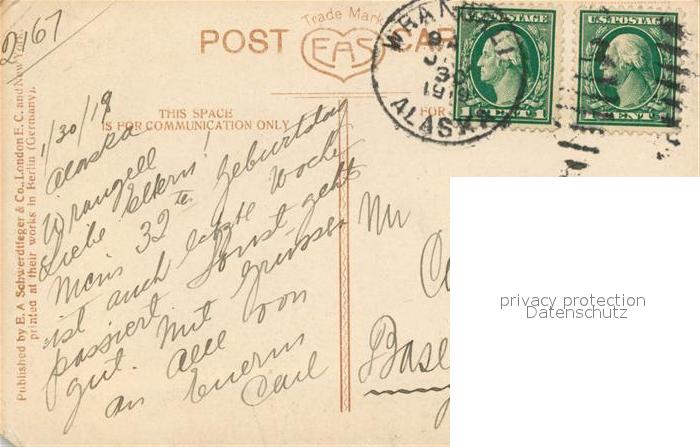 2167
Trade Mark
POST CAR
EAS
WRANGELL
JAN
30
1919
ALASKA
U.S. POSTAGE
1 CENT 1
U.S. POSTAGE
CENT
THIS SPACE
IS FOR COMMUNICATION ONLY
FOR
Published by E. A. Schwerdtfeger & Co., London E. C. and New York,
printed at their works in Berlin (Germany).
1/30/19
Alaska
Wrangell
Liebe Eltern!
Mein 32ten Geburtstag
ist auch letzte Woche
passiert. Sonst geht
gut. Mit Grüssen
an Alle von
Euerm
Carl
Mr
Basel
privacy protection
Datenschutz